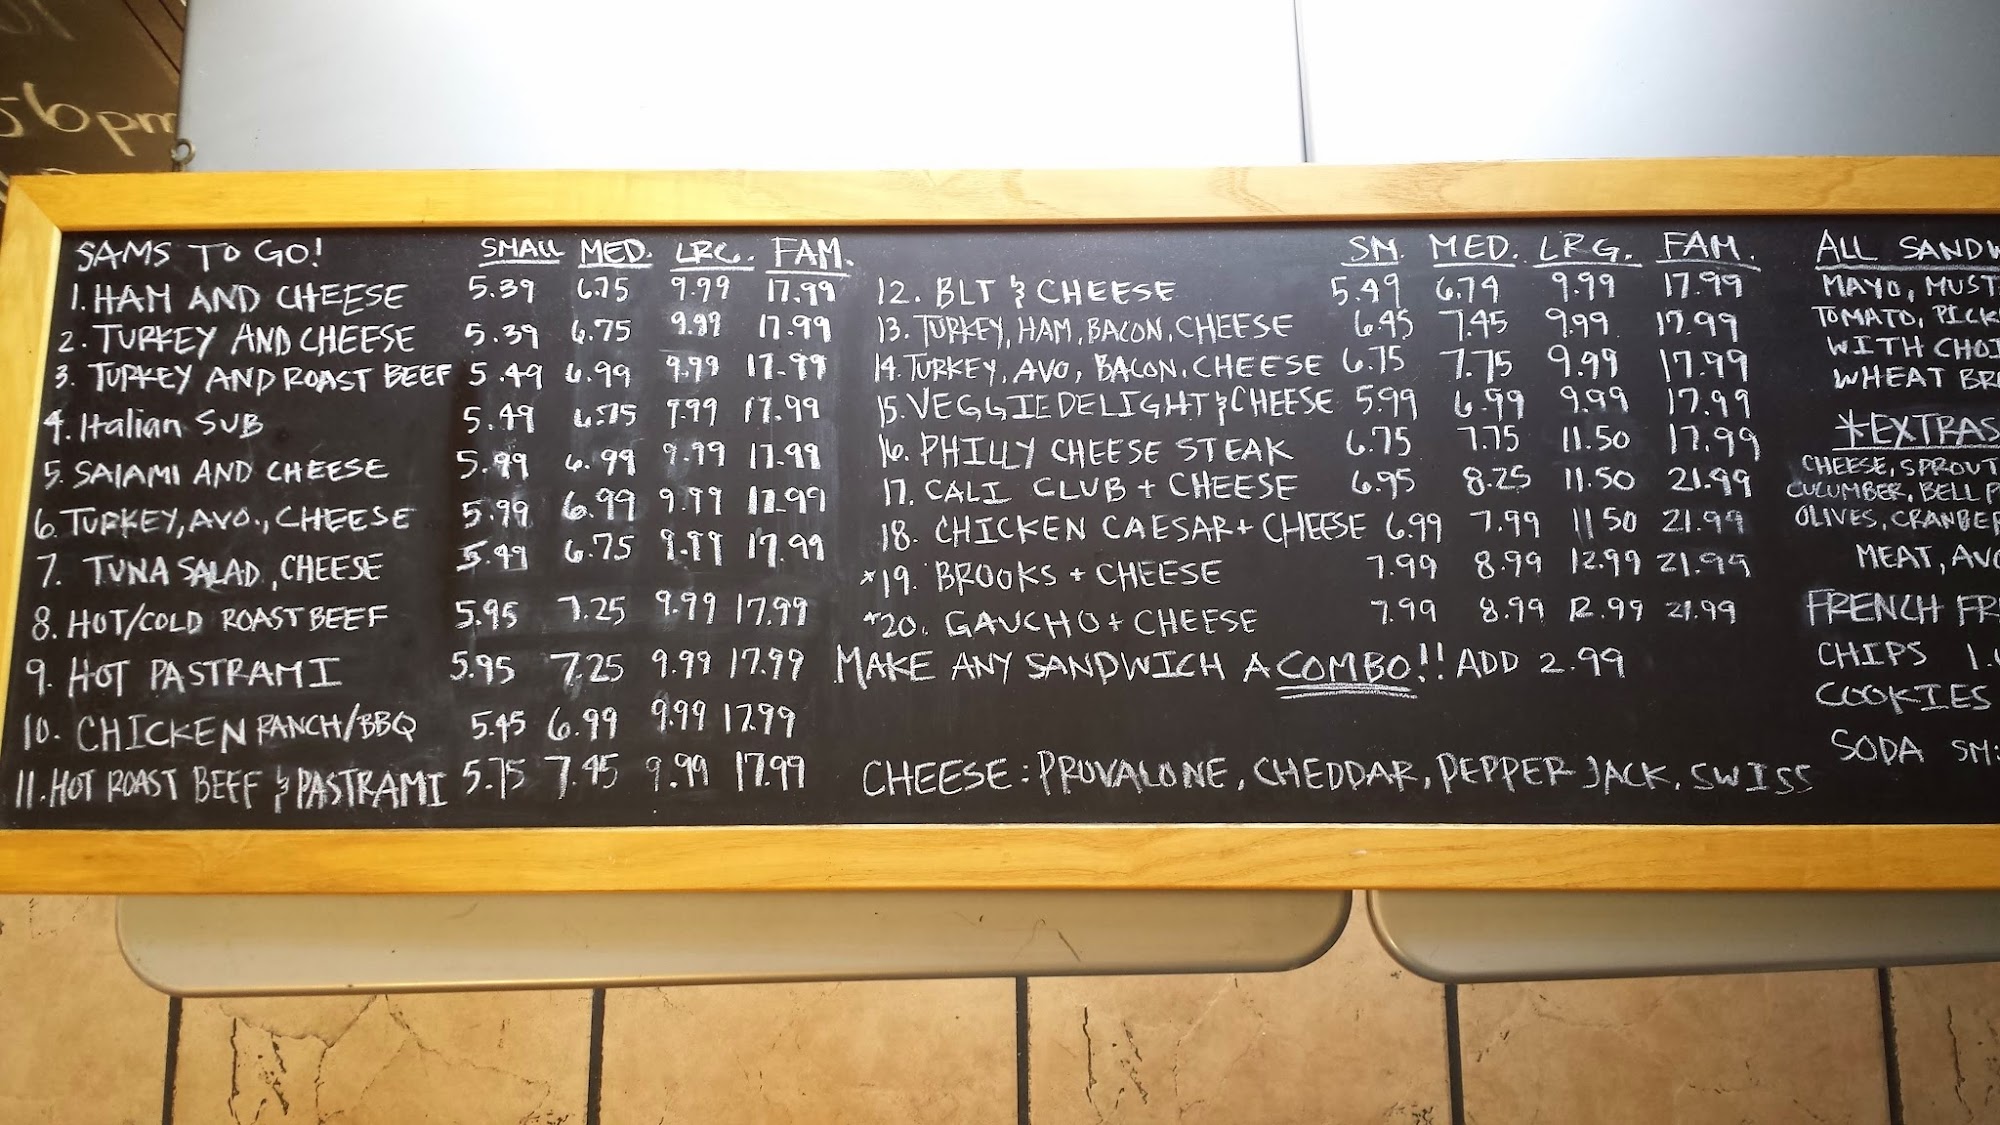 56pm
SAMS TO GO! SMALL MED. LRG. FAM.
1. HAM AND CHEESE 5.39 6.75 9.99 17.99
2. TURKEY AND CHEESE 5.39 6.75 9.99 17.99
3. TURKEY AND ROAST BEEF 5.49 6.99 9.99 17.99
4. Italian SUB 5.49 6.75 9.99 17.99
5. SALAMI AND CHEESE 5.99 6.99 9.99 17.99
6. TURKEY, AVO., CHEESE 5.99 6.99 9.99 17.99
7. TUNA SALAD, CHEESE 5.49 6.75 9.99 17.99
8. HOT/COLD ROAST BEEF 5.95 7.25 9.99 17.99
9. HOT PASTRAMI 5.95 7.25 9.99 17.99
10. CHICKEN RANCH/BBQ 5.45 6.99 9.99 17.99
11. HOT ROAST BEEF & PASTRAMI 5.75 7.45 9.99 17.99
SM. MED. LRG. FAM.
12. BLT & CHEESE 5.49 6.74 9.99 17.99
13. TURKEY, HAM, BACON, CHEESE 6.45 7.45 9.99 17.99
14. TURKEY, AVO, BACON, CHEESE 6.75 7.75 9.99 17.99
15. VEGGIE DELIGHT & CHEESE 5.99 6.99 9.99 17.99
16. PHILLY CHEESE STEAK 6.75 7.75 11.50 17.99
17. CALI CLUB + CHEESE 6.95 8.25 11.50 21.99
18. CHICKEN CAESAR + CHEESE 6.99 7.99 11 50 21.99
*19. BROOKS + CHEESE 7.99 8.99 12.99 21.99
*20. GAUCHO + CHEESE 7.99 8.99 12.99 21.99
MAKE ANY SANDWICH A COMBO!! ADD 2.99
CHEESE: PROVALONE, CHEDDAR, PEPPER JACK, SWISS
ALL SANDW
MAYO, MUST
TOMATO, PICK
WITH CHOI
WHEAT BR
*EXTRAS
CHEESE, SPROUT
CUCUMBER, BELL P
OLIVES, CRANBER
MEAT, AVO
FRENCH FR
CHIPS 1.
COOKIES
SODA SM: